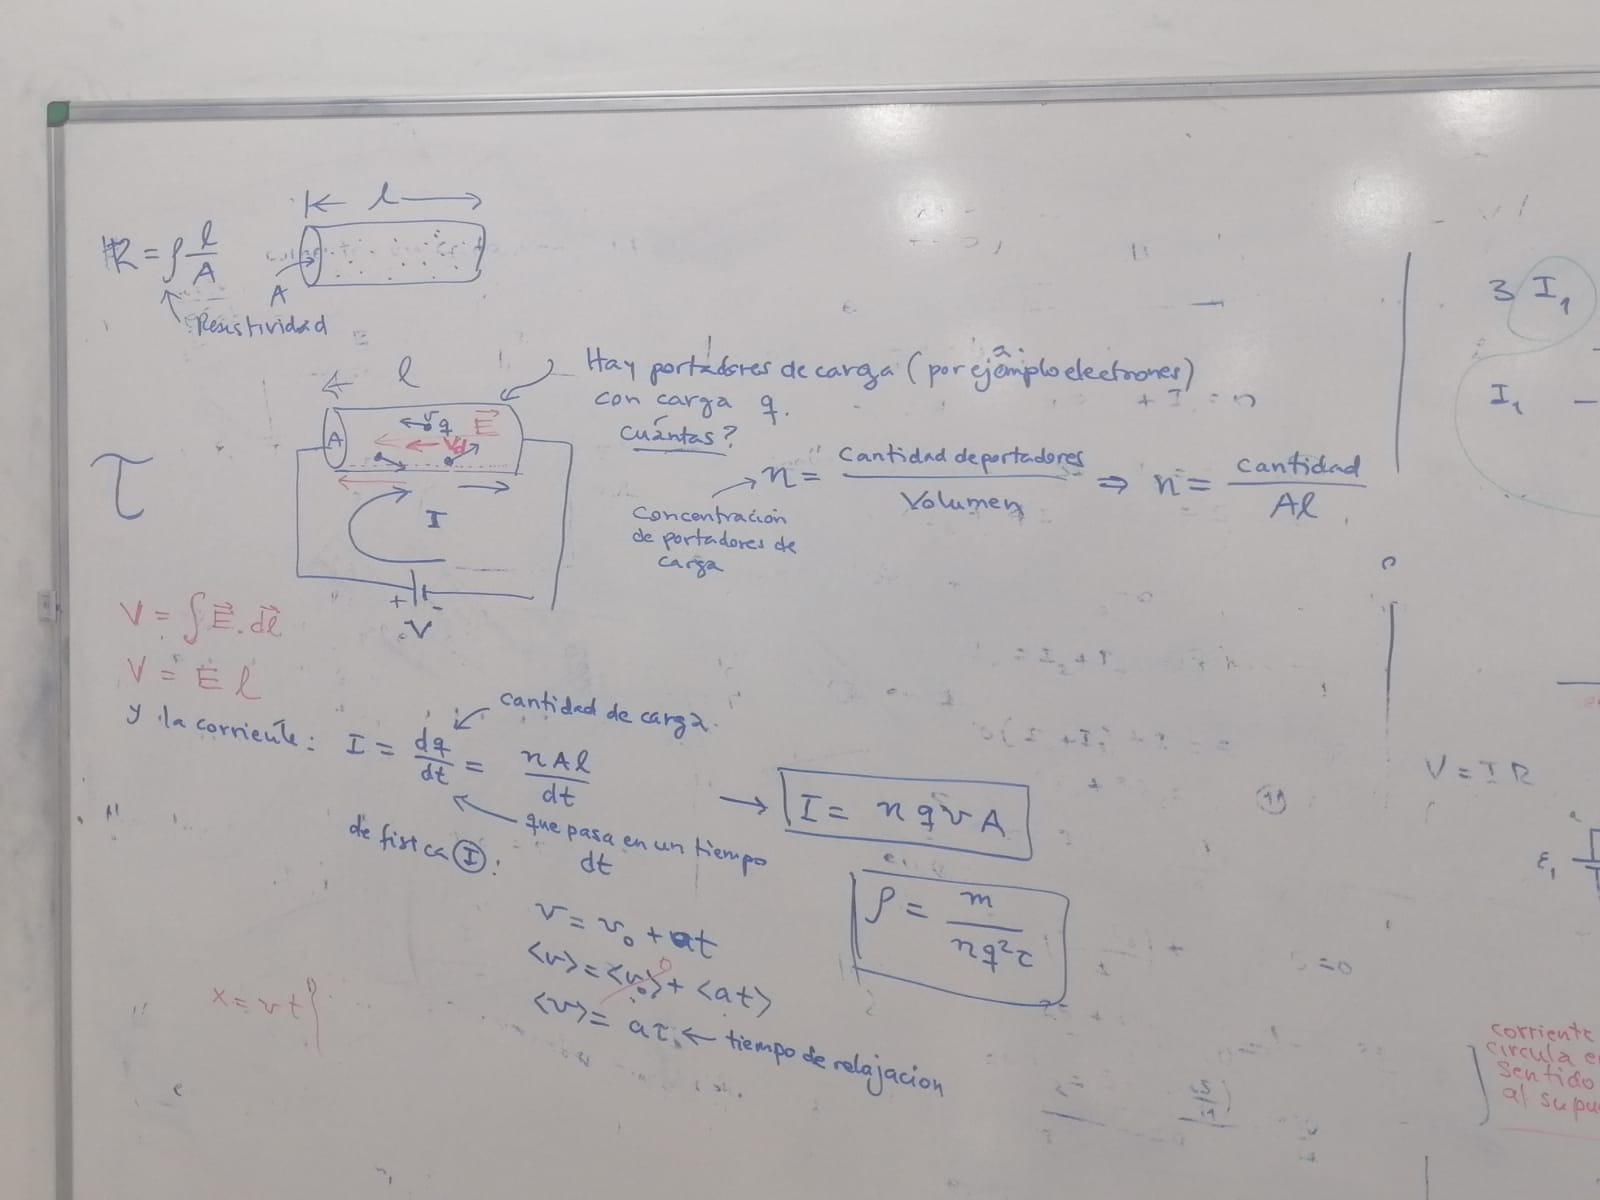 l
R = ρ l/A
A
Resistividad
l
Hay portadores de carga (por ejemplo electrones)
con carga q.
cuántas?
A
v q E⃗
Vd
I
+ -
V
τ
n = Cantidad de portadores / Volumen ⇒ n = cantidad / Al
Concentración
de portadores de
carga
V = ∫ E⃗ . dl⃗
V = E l
cantidad de carga.
y la corriente: I = dq/dt = nAl/dt
→ I = n q v A
que pasa en un tiempo
dt
de física I:
ρ = m / nq²τ
v = v₀ + at
<v> = <v₀> + <at>
0
<v> = aτ ← tiempo de relajacion
x = vt
3 I₁
I₁ -
V = I R
ε₁
corriente
circula e
sentido
al supu